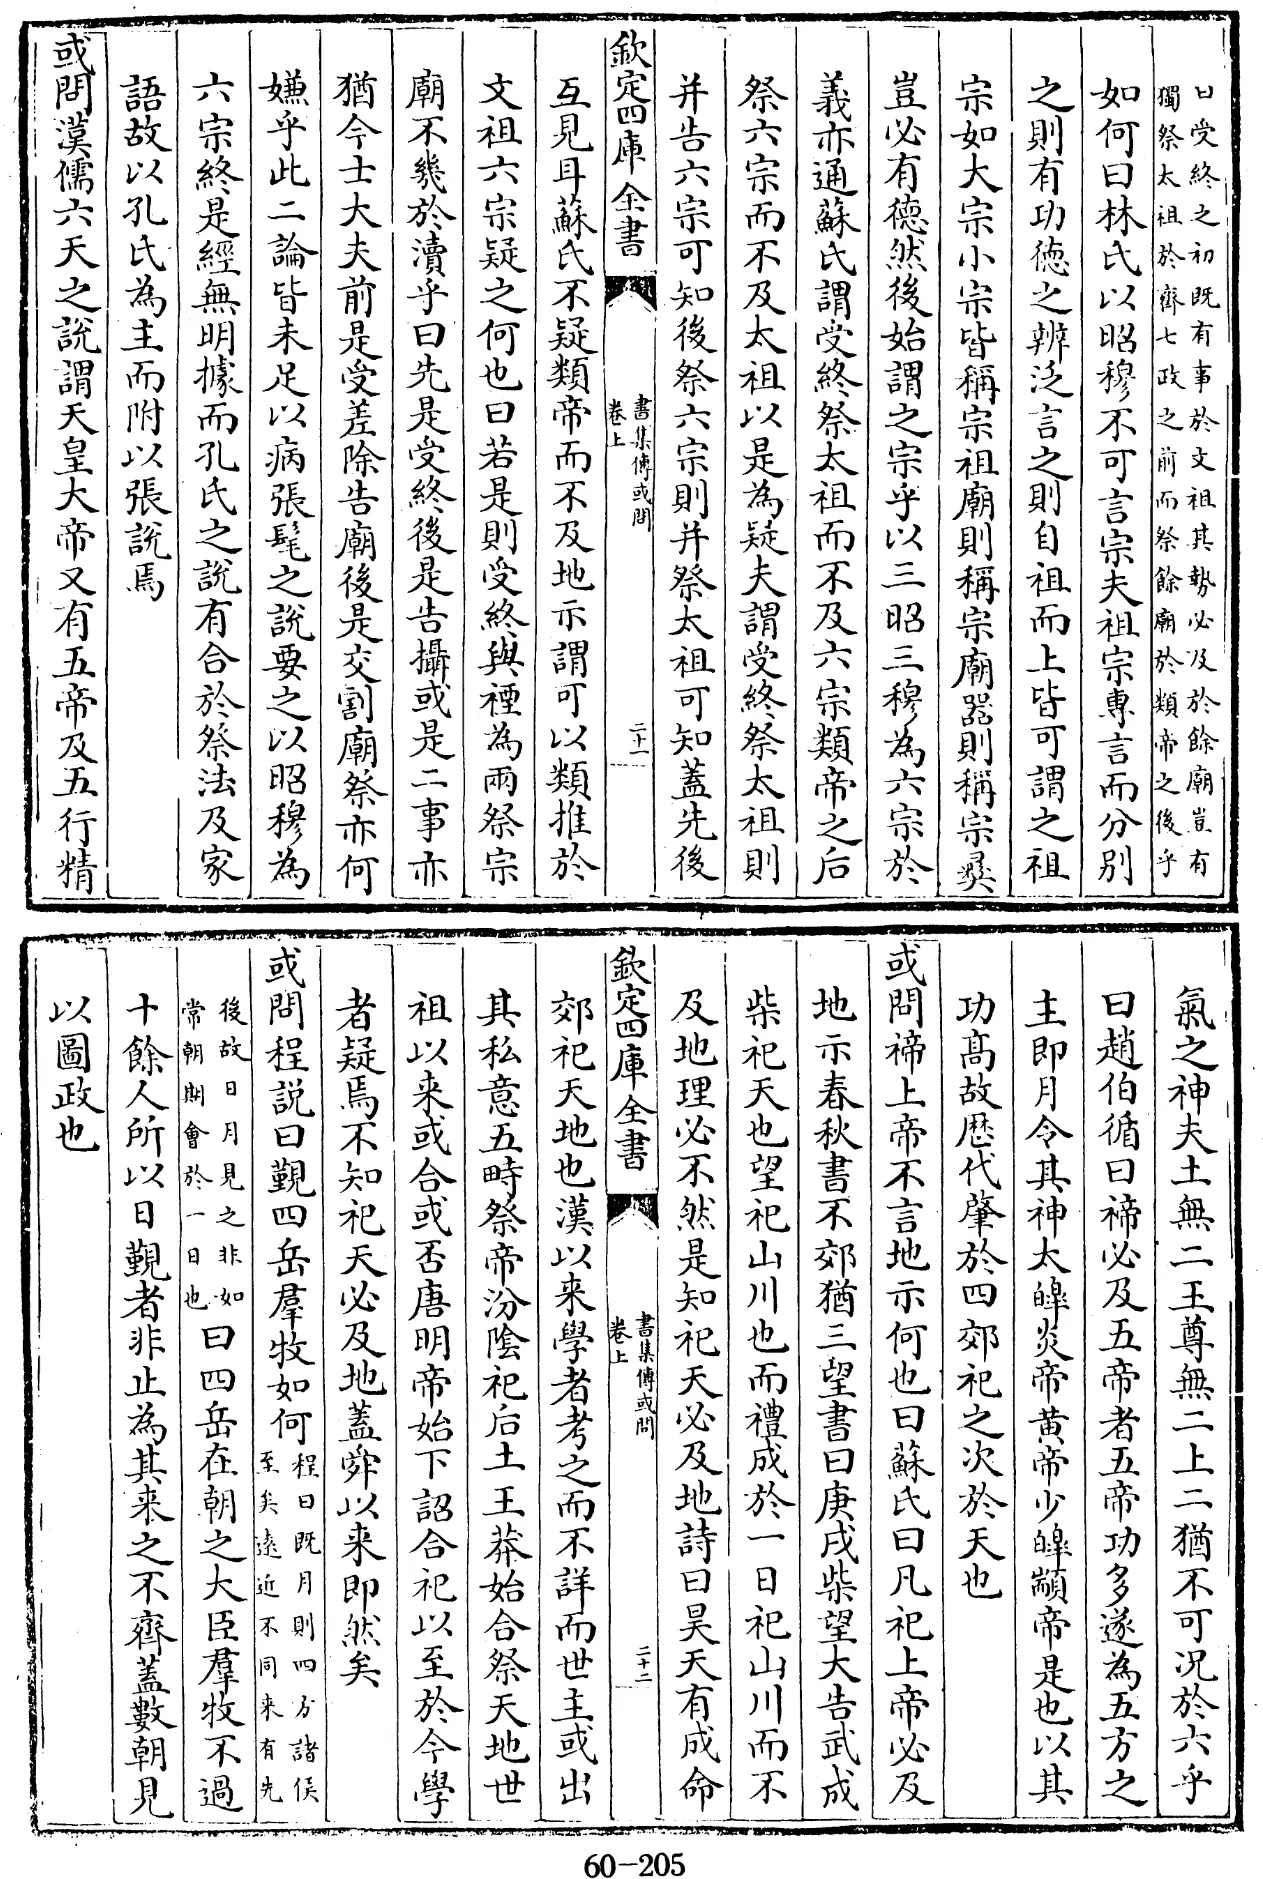 曰受終之初既有事於文祖其勢必及於餘廟豈有
獨祭太祖於齊七政之前而祭餘廟於類帝之後乎
如何曰林氏以昭穆不可言宗夫祖宗專言而分别
之則有功徳之辨泛言之則自祖而上皆可謂之祖
宗如大宗小宗皆稱宗祖廟則稱宗廟器則稱宗彛
豈必有德然後始謂之宗乎以三昭三穆為六宗於
義亦通蘇氏謂受終祭太祖而不及六宗類帝之后
祭六宗而不及太祖以是為疑夫謂受終祭太祖則
并告六宗可知後祭六宗則并祭太祖可知蓋先後
欽定四庫全書
書集傳或問
卷上
二十一
互見耳蘇氏不疑類帝而不及地示謂可以類推於
文祖六宗疑之何也曰若是則受終與禋為兩祭宗
廟不幾於瀆乎曰先是受終後是告攝或是二事亦
猶今士大夫前是受差除告廟後是交割廟祭亦何
嫌乎此二論皆未足以病張髦之說要之以昭穆為
六宗終是經無明據而孔氏之說有合於祭法及家
語故以孔氏為主而附以張說焉
或問漢儒六天之說謂天皇大帝又有五帝及五行精
氣之神夫土無二王尊無二上二猶不可况於六乎
曰趙伯循曰禘必及五帝者五帝功多遂為五方之
主即月令其神太皥炎帝黄帝少皥顓帝是也以其
功髙故歴代肇於四郊祀之次於天也
或問禘上帝不言地示何也曰蘇氏曰凡祀上帝必及
地示春秋書不郊猶三望書曰庚戌柴望大告武成
柴祀天也望祀山川也而禮成於一日祀山川而不
及地理必不然是知祀天必及地詩曰昊天有成命
欽定四庫全書
書集傳或問
卷上
二十二
郊祀天地也漢以来學者考之而不詳而世主或出
其私意五畤祭帝汾陰祀后土王莽始合祭天地世
祖以来或合或否唐明帝始下詔合祀以至於今學
者疑焉不知祀天必及地蓋舜以来即然矣
或問程說曰覲四岳羣牧如何
程曰既月則四方諸侯
至矣逺近不同来有先
後故日日月見之非如
常朝期會於一日也
曰四岳在朝之大臣羣牧不過
十餘人所以日覲者非止為其来之不齊蓋數朝見
以圖政也
60-205